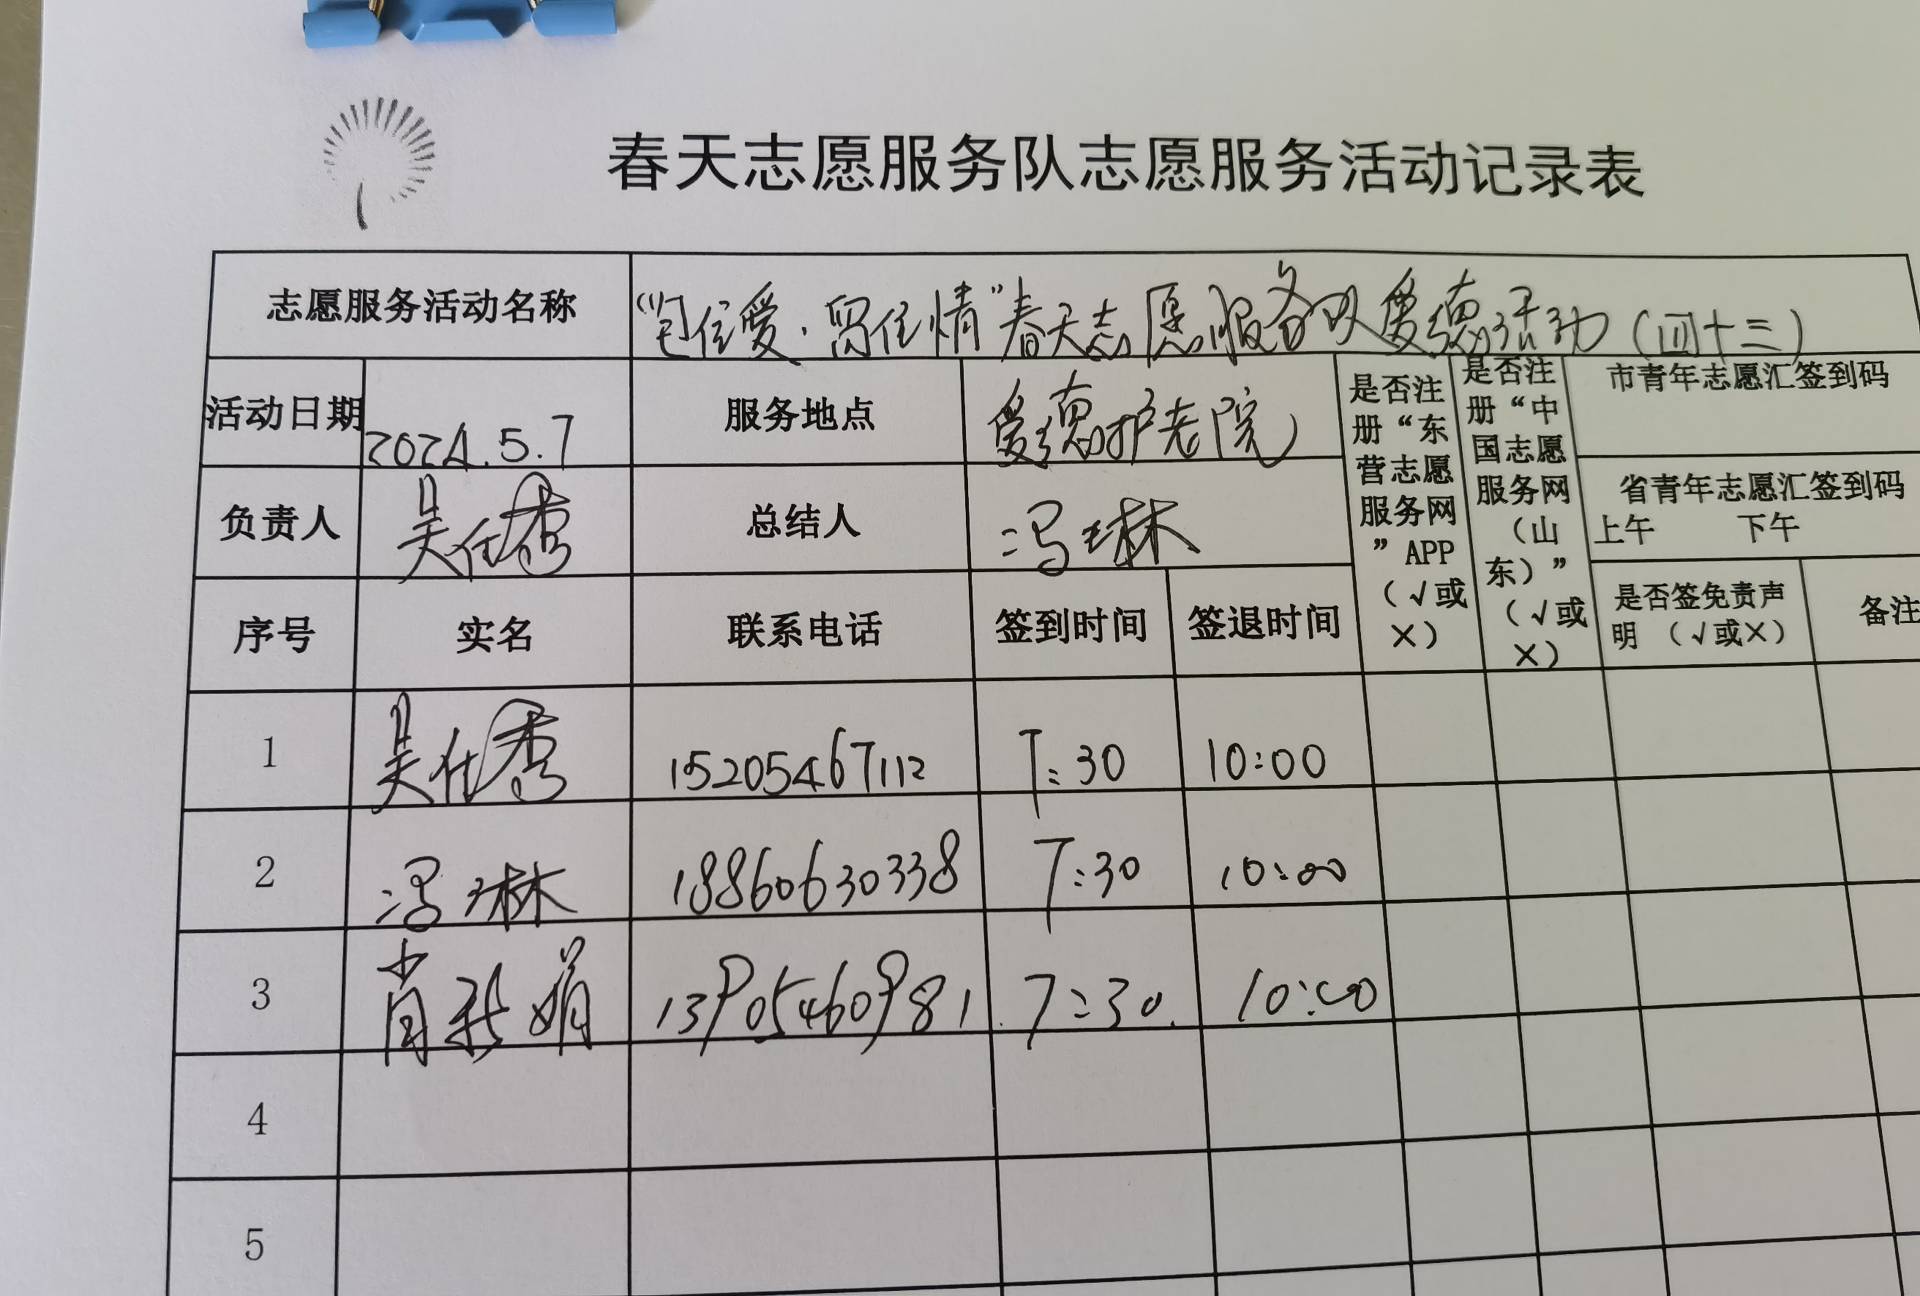 春天志愿服务队志愿服务活动记录表
志愿服务活动名称 住爱·留住情"春天志愿服务队爱德活动(四十三)
活动日期 2024.5.7 服务地点 爱德护老院
是否注册“东营志愿服务网”APP(√或×)
是否注册“中国志愿服务网(山东)”(√或×)
市青年志愿汇签到码
省青年志愿汇签到码
上午 下午
负责人 吴仕秀 总结人 冯琳
序号 实名 联系电话 签到时间 签退时间 是否签免责声明 (√或×) 备注
1 吴仕秀 15205467112 7:30 10:00
2 冯琳 18860630338 7:30 10:00
3 肖新娟 13905460981 7:30 10:00
4
5